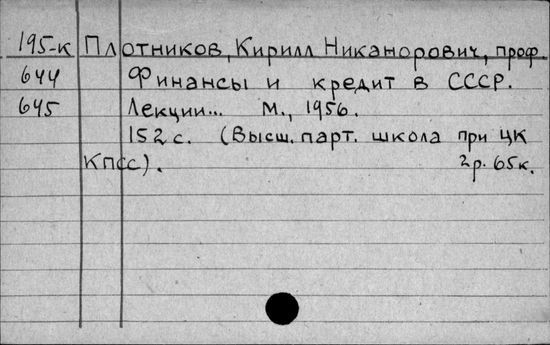 195-к Плотников, Кирилл Никанорович, проф.
644 Финансы и кредит в СССР.
645 Лекции... М., 1956.
152 с. (Высш. парт. школа при ЦК
КПСС). 2р. 65к.